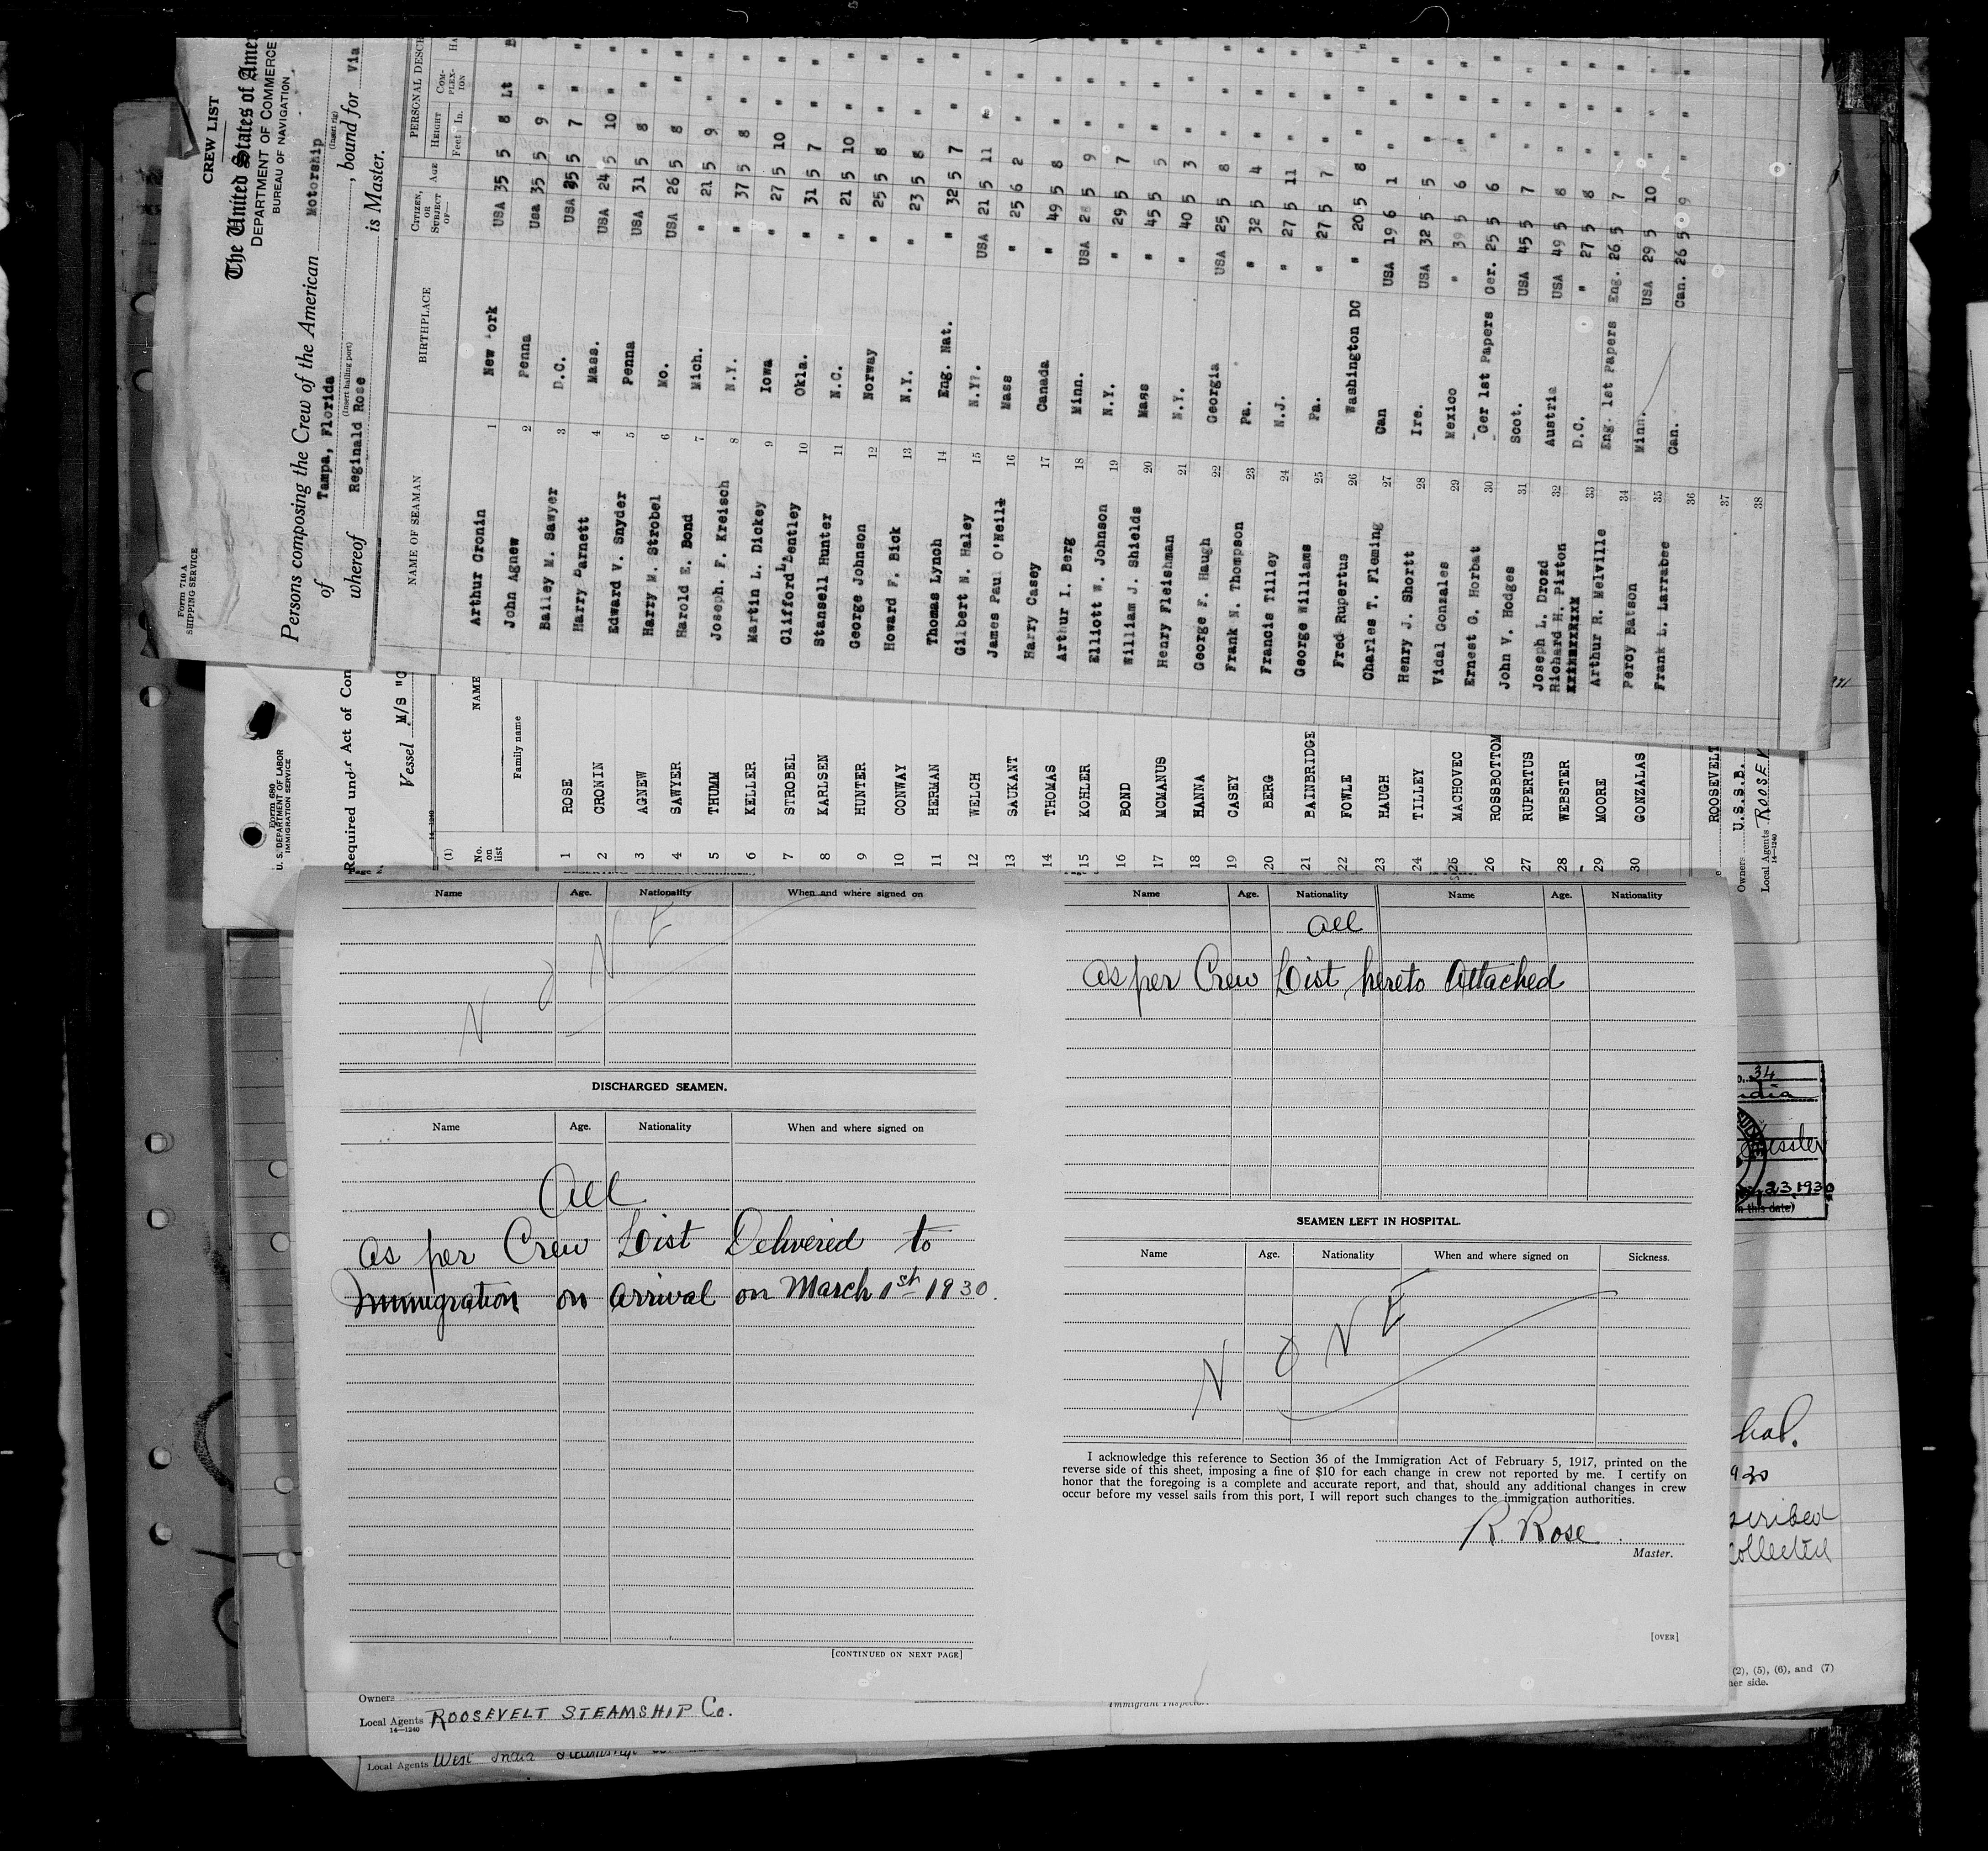 Form 710 A
SHIPPING SERVICE
CREW LIST
The United States of Amer
DEPARTMENT OF COMMERCE
BUREAU OF NAVIGATION
Persons composing the Crew of the American Motorship
(Insert rig)
of Tampa, Florida , bound for Via
(Insert hailing port)
whereof Reginald Rose is Master.
NAME OF SEAMAN BIRTHPLACE CITIZEN, OR SUBJECT OF— Age PERSONAL DESCR
HEIGHT Feet In. COM-PLEX-ION HA
Arthur Cronin 1 New York USA 35 5 8 Lt B
John Agnew 2 Penna Usa 35 5 9 " "
Bailey M. Sawyer 3 D.C. USA 25 5 7 " "
Harry Barnett 4 Mass. USA 24 5 10 " "
Edward V. Snyder 5 Penna USA 31 5 8 " "
Harry M. Strobel 6 Mo. USA 26 5 8 " "
Harold E. Bond 7 Mich. " 21 5 9 " "
Joseph. F. Kreisch 8 N.Y. " 37 5 8 " "
Martin L. Dickey 9 Iowa " 27 5 10 " "
Clifford L Bentley 10 Okla. " 31 5 7 " "
Stansell Hunter 11 N.C. " 21 5 10 " "
George Johnson 12 Norway " 25 5 8 " "
Howard F. Bick 13 N.Y. " 23 5 8 " "
Thomas Lynch 14 Eng. Nat. " 32 5 7 " "
Gilbert N. Haley 15 N.Y. USA 21 5 11 " "
James Paul O'Neill 16 Mass " 25 6 2 " "
Harry Casey 17 Canada " 49 5 8 " "
Arthur I. Berg 18 Minn. USA 5 9 " "
Elliott W. Johnson 19 N.Y. " 29 5 7 " "
William J. Shields 20 Mass " 45 5 5 " "
Henry Fleishman 21 N.Y. " 40 5 3 " "
George F. Haugh 22 Georgia USA 25 5 8 " "
Frank N. Thompson 23 Pa. " 32 5 4 " "
Francis Tilley 24 N.J. " 27 5 11 " "
George Williams 25 Pa. " 27 5 7 " "
Fred Rupertus 26 Washington DC " 20 5 8 " "
Charles T. Fleming 27 Can USA 19 6 1 " "
Henry J. Shortt 28 Ire. USA 32 5 5 " "
Vidal Gonzales 29 Mexico " 39 5 6 " "
Ernest G. Horbat 30 Ger 1st Papers Ger. 25 5 6 " "
John V. Hodges 31 Scot. USA 45 5 7 " "
Joseph L. Drosd 32 Austria USA 49 5 8 " "
Richard H. Pixton 33 D.C. " 27 5 8 " "
Arthur R. Melville 34 Eng. 1st Papers Eng. 26 5 7 " "
Percy Batson 35 Minn. USA 29 5 10 " "
Frank L. Larrabee 36 Can. Can. 26 5 9 " "
37
38
Form 680
U. S. DEPARTMENT OF LABOR
IMMIGRATION SERVICE
Required under Act of Con
Vessel M/S "C
14—1240
(1) No. on list
NAME
Family name
1 ROSE
2 CRONIN
3 AGNEW
4 SAWYER
5 THUMM
6 KELLER
7 STROBEL
8 KARLSEN
9 HUNTER
10 CONWAY
11 HERMAN
12 WELCH
13 SAUKANT
14 THOMAS
15 KOHLER
16 BOND
17 MCMANUS
18 HANNA
19 CASEY
20 BERG
21 BAINBRIDGE
22 FOWLE
23 HAUGH
24 TILLEY
25 MACHOVEC
26 ROSSBOTTOM
27 RUPERTUS
28 WEBSTER
29 MOORE
30 GONZALAS
ROOSEVELT
Owners U.S.S.B.
Local Agents ROOSEV
14—1240
Page 2.
Name Age. Nationality When and where signed on
NONE
DISCHARGED SEAMEN.
Name Age. Nationality When and where signed on
All
as per Crew List Delivered to
Immigration on arrival on March 1st 1930.
[CONTINUED ON NEXT PAGE]
Name Age. Nationality Name Age. Nationality
All
as per Crew List, hereto attached
SEAMEN LEFT IN HOSPITAL.
Name Age. Nationality When and where signed on Sickness.
NONE
I acknowledge this reference to Section 36 of the Immigration Act of February 5, 1917, printed on the
reverse side of this sheet, imposing a fine of $10 for each change in crew not reported by me. I certify on
honor that the foregoing is a complete and accurate report, and that, should any additional changes in crew
occur before my vessel sails from this port, I will report such changes to the immigration authorities.
R. Rose
Master.
[OVER]
o. 34
ndia
essler
23, 1930
m this date)
930
scribed
collected
(2), (5), (6), and (7)
her side.
Owners
Local Agents ROOSEVELT STEAMSHIP Co.
14—1240
Immigrant Inspector.
Local Agents West India Steamship